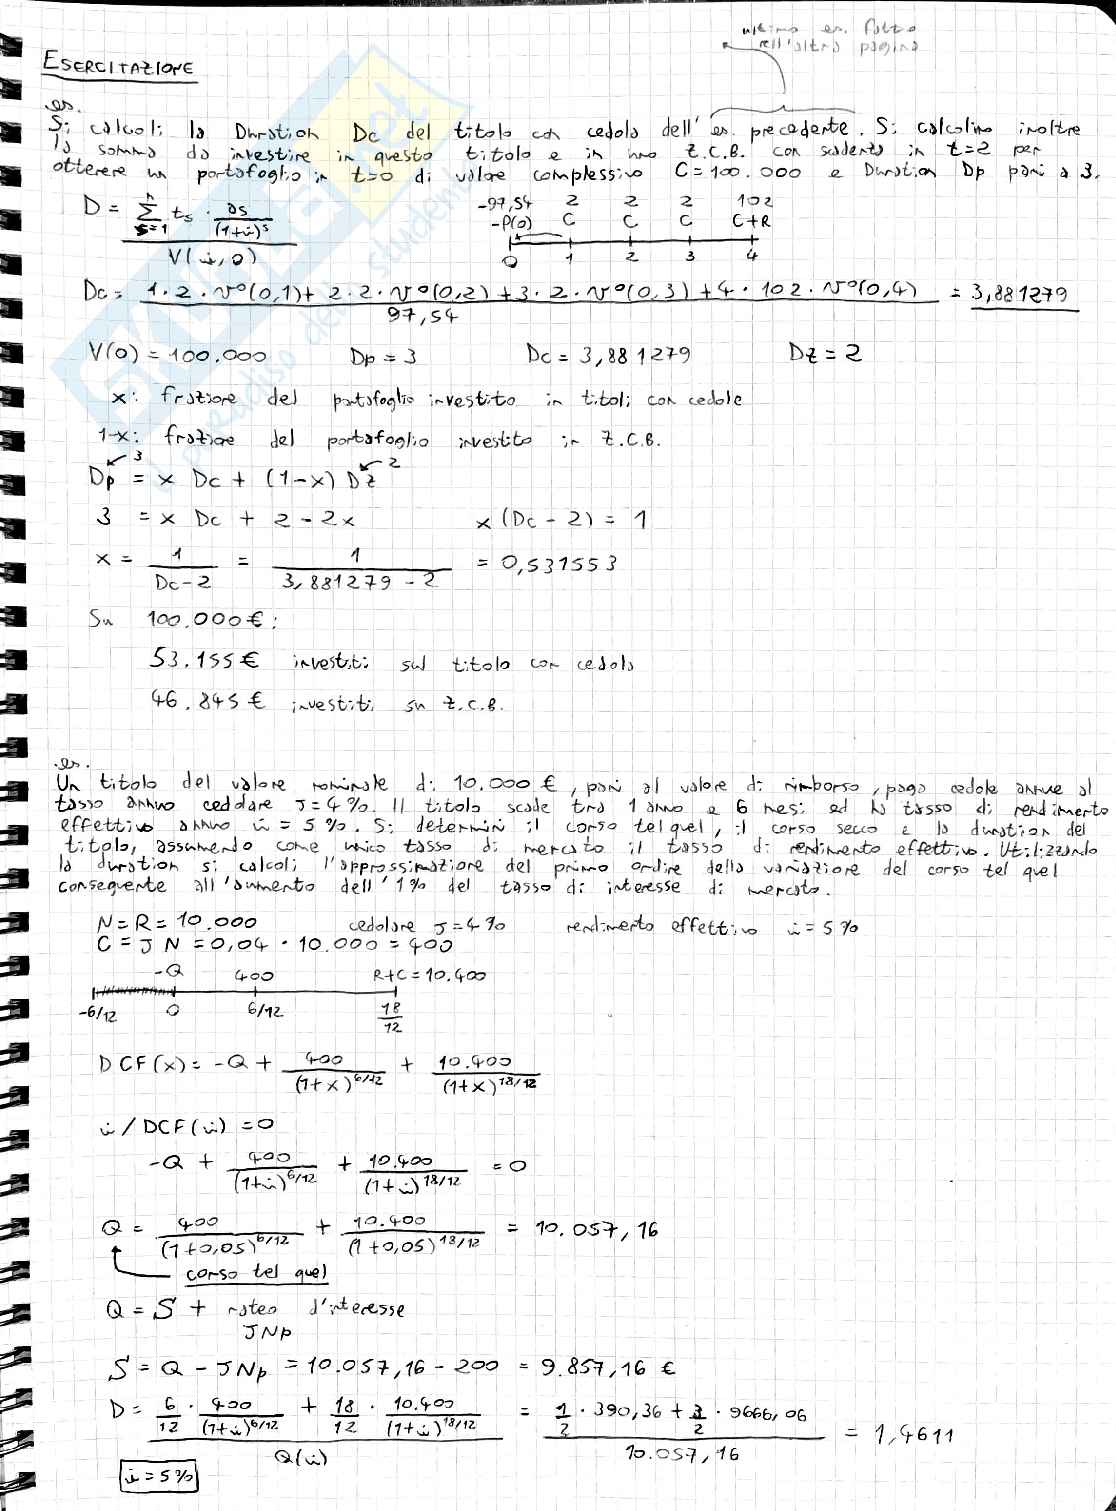 ultimo es. fatto
nell'altra pagina
ESERCITAZIONE
es.
Si calcoli la Duration Dc del titolo con cedola dell'es. precedente. Si calcolino inoltre
la somma da investire in questo titolo e in uno Z.C.B. con scadenza in t=2 per
ottenere un portafoglio in t=0 di valore complessivo C=100.000 e Duration Dp pari a 3.
D = Σ(s=1, n) ts · as/(1+i)^s / V(i,0)
-97,54 2 2 2 102
-P(0) C C C C+R
0 1 2 3 4
Dc = (1·2·v°(0,1) + 2·2·v°(0,2) + 3·2·v°(0,3) + 4·102·v°(0,4)) / 97,54 = 3,881279
V(0) = 100.000 Dp = 3 Dc = 3,881279 Dz = 2
x: frazione del portafoglio investito in titoli con cedole
1-x: frazione del portafoglio investito in Z.C.B.
3 2
Dp = x Dc + (1-x) Dz
3 = x Dc + 2 - 2x x(Dc - 2) = 1
x = 1/(Dc-2) = 1/(3,881279 - 2) = 0,531553
Su 100.000 €:
53.155 € investiti sul titolo con cedola
46.845 € investiti su Z.C.B.
es.
Un titolo del valore nominale di 10.000 €, pari al valore di rimborso, paga cedole annue al
tasso annuo cedolare J=4%. Il titolo scade tra 1 anno e 6 mesi ed ha tasso di rendimento
effettivo annuo i=5%. Si determini il corso tel quel, il corso secco e la duration del
titolo, assumendo come unico tasso di mercato il tasso di rendimento effettivo. Utilizzando
la duration si calcoli l'approssimazione del primo ordine della variazione del corso tel quel
conseguente all'aumento dell'1% del tasso di interesse di mercato.
N = R = 10.000 cedolare J=4% rendimento effettivo i=5%
C = JN = 0,04 · 10.000 = 400
-Q 400 R+C=10.400
-6/12 0 6/12 18/12
DCF(x) = -Q + 400/(1+x)^6/12 + 10.400/(1+x)^18/12
i / DCF(i) = 0
-Q + 400/(1+i)^6/12 + 10.400/(1+i)^18/12 = 0
Q = 400/(1+0,05)^6/12 + 10.400/(1+0,05)^18/12 = 10.057,16
corso tel quel
Q = S + rateo d'interesse
JNp
S = Q - JNp = 10.057,16 - 200 = 9.857,16 €
D = (6/12 · 400/(1+i)^6/12 + 18/12 · 10.400/(1+i)^18/12) / Q(i) = (1/2 · 390,36 + 3/2 · 9666,06) / 10.057,16 = 1,4611
i = 5%